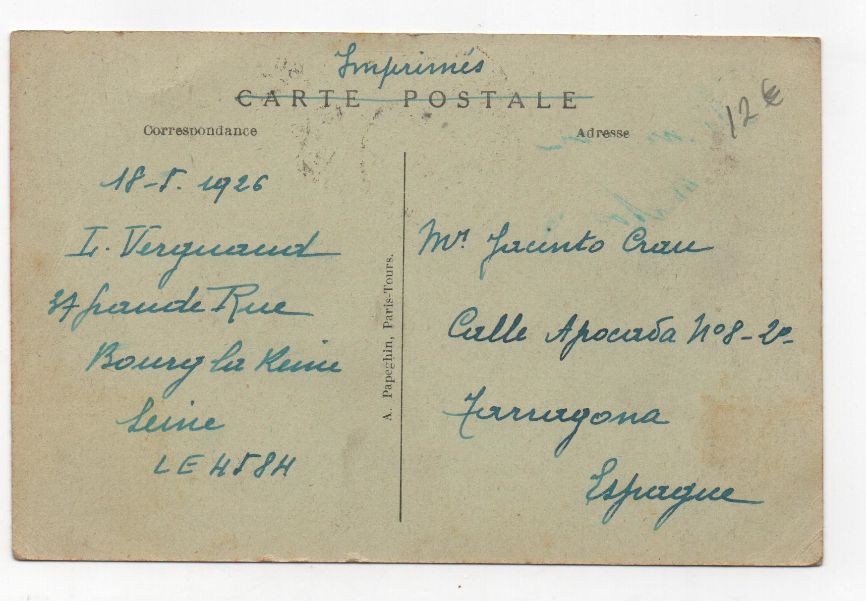 Imprimés
CARTE POSTALE
Correspondance
Adresse
12€
18-5.1926
L. Vergnaud
37 grande Rue
Bourg la Reine
Seine
LE 4584
A. Papeghin, Paris-Tours.
Mr Jacinto Crau
Calle Apocada Nº8-2º-
Tarragona
Espagne